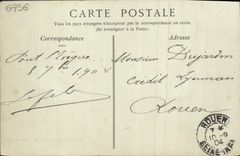 6756
CARTE POSTALE
Tous les pays étrangers n'acceptent pas la correspondance au recto.
(Se renseigner à la Poste).
Correspondance
Adresse
Pont l'Évêque
8 7bre 1904
Monsieur Dujardin
Crédit Lyonnais
Rouen
ROUEN
10-9
04
SEINE-INFRE